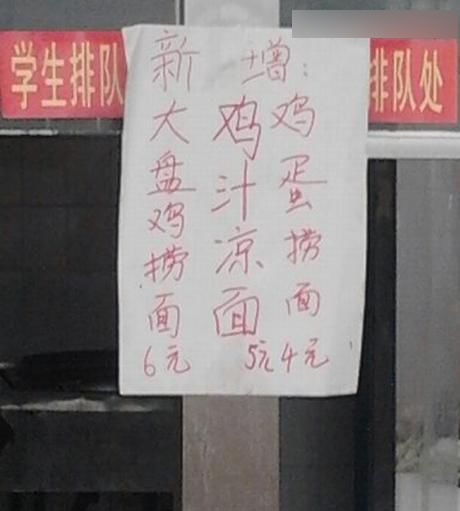 学生排队
排队处
新增:
大盘鸡捞面
6元
鸡汁凉面
5元
鸡蛋捞面
4元